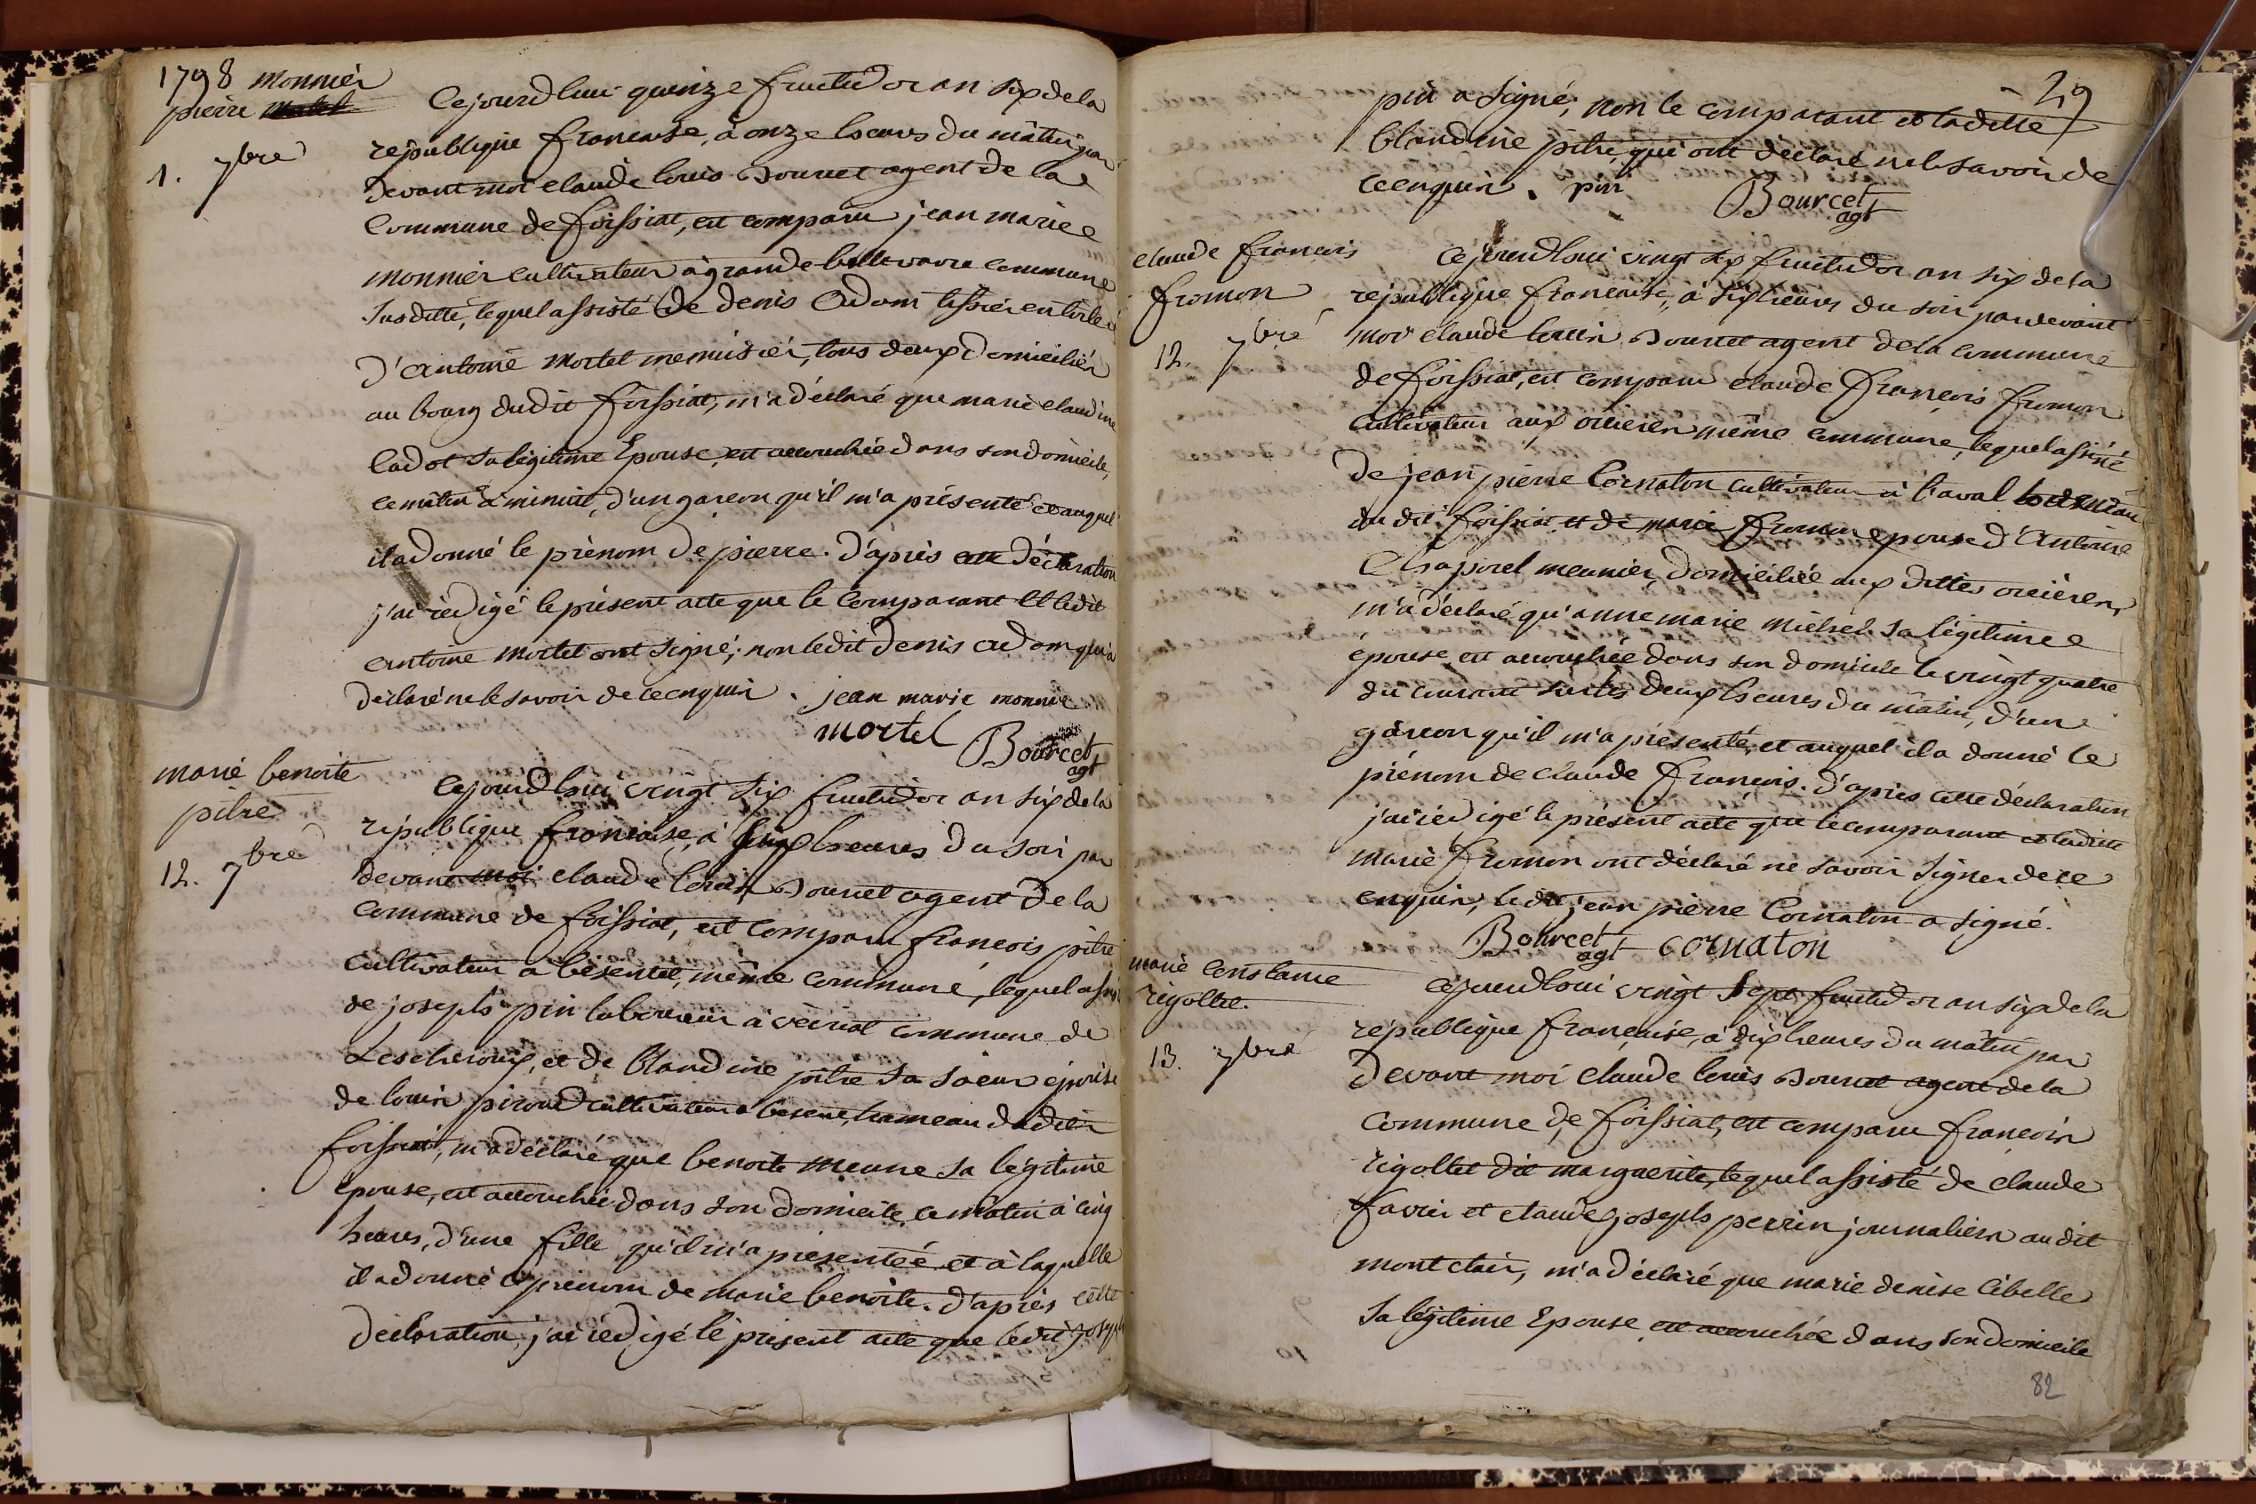 1798 monnier
pierre
1. 7bre
Cejourdhui quinze fructidor an six de la
republique francaise, à onze heures du matin par
devant moi claude louis Bourcet agent de la
Commune de foissiat, est comparu jean marie
monnier cultivateur à grande commune
susditte, lequel assisté de denis Adam tissier en toile
d'antoine mortel menuisier, tous deux domiciliés
au bourg dudit foissiat, m'a déclaré que marie claudine
cadot sa légitime Epouse, est accouchée dans son domicile,
ce matin à minuit, d'un garcon qu'il m'a présenté et auquel
il a donné le prénom de pierre. d'après cette déclaration
j'ai rédigé le présent acte que le Comparant et ledit
antoine mortel ont signé; non ledit denis adam qui a
déclaré ne le savoir de ce enquis. jean marie monnier
mortel Bourcet
agt
marie benoite
pitre
12. 7bre
Cejourdhui vingt six fructidor an six de la
république francaise, à heures du soir par
devant moi claude louis Bourcet agent de la
commune de foissiat, est comparu françois pitre
cultivateur à besentet, même commune, lequel assisté
de joseph pin laboureur à commune de
Lescheroux, et de blandine pitre sa soeur épouse
de louis piroud cultivateur à hameau dudit
foissiat, m'a déclaré que benoite meune sa légitime
épouse, est accouchée dans son domicile ce matin à cinq
heures, d'une fille qu'il m'a présentée et à laquelle
il a donné le prénom de marie benoite. d'après cette
déclaration, j'ai rédigé le présent acte que ledit joseph
29
pin a signé; non le comparant et laditte
blandine pitre, qui ont déclaré ne le savoir de
ce enquis. pin Bourcet
agt
claude francois
fromon
12. 7bre
Cejourdhui vingt six fructidor an six de la
république francaise, à six heures du soir pardevant
moi claude louis Bourcet agent de la commune
de foissiat, est comparu claude françois fromon
cultivateur aux orcieres même commune, lequel assisté
de jean pierre Cornaton cultivateur à hameau
du dit foissiat et de marie fromon epouse d'antoine
Chaporel meunier, domiciliée aux dittes orcieres,
m'a déclaré qu'anne marie michel sa légitime
épouse est accouchée dans son domicile le vingt quatre
du courant sur les deux heures du matin, d'un
garcon qu'il m'a présenté, et auquel il a donné le
prénom de claude francois. d'après cette déclaration
j'ai rédigé le présent acte que le comparant et laditte
marie fromon ont déclaré ne savoir signer de ce
enquis, ledit jean pierre Cornaton a signé.
Bourcet cornaton
agt
marie constance
rigollet.
13. 7bre
Cejourdhui vingt sept fructidor an six de la
république francaise, à dix heures du matin par
devant moi claude louis Bourcet agent de la
commune de foissiat, est comparu francois
rigollet dit marguerite, lequel assisté de claude
favier et claude joseph perrin journaliers audit
montclair, m'a déclaré que marie denise libelle
sa légitime Epouse est accouchée dans son domicile
82